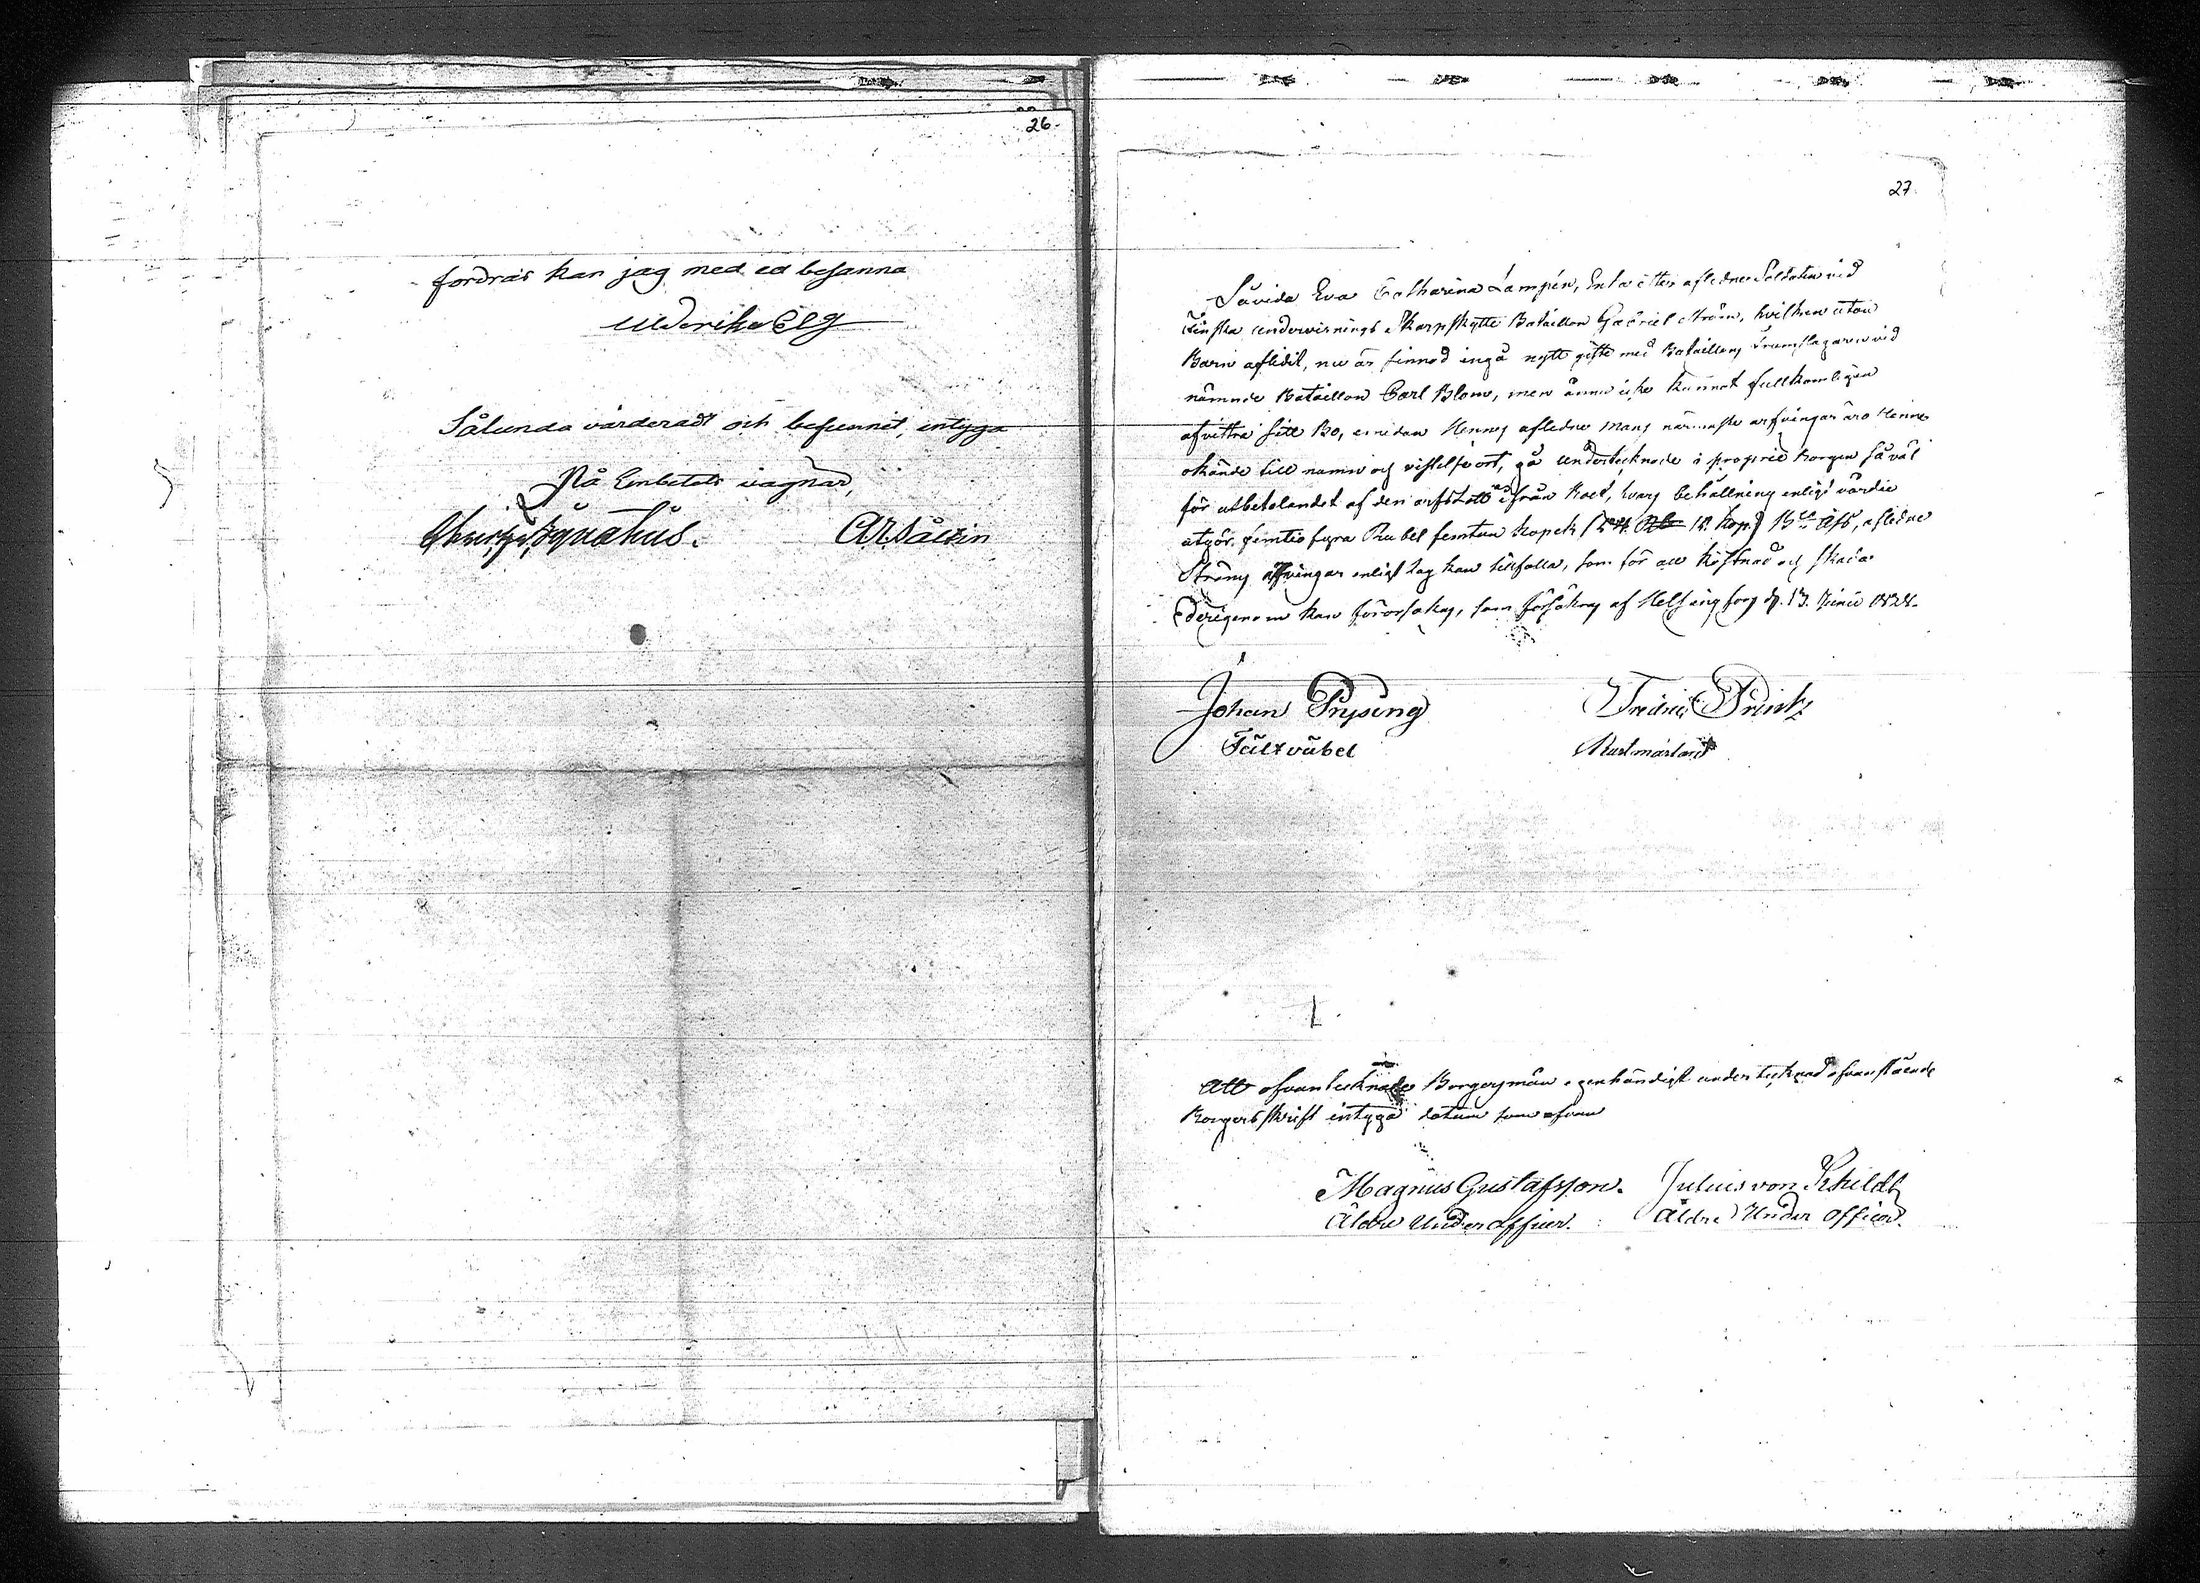 26.
fordras kan jag med ed besanna
Ulderika Elg
Sålunda värderadt och befunnit, intyga
På Embetets vägnar,
Ignatius. CR Sålvin
27.
Såvida Eva Catharina Lampén, Enka efter aflidne Soldaten vid
Finska Undervisnings Skarpskytte Bataillon Gabriel Ström, hvilken utan
Barn aflidit, nu är sinnad ingå nytt gifte med Bataillons Trumslagaren vid
nämnde Bataillon Carl Blom, men ännu icke kunnat fullkomligen
afvittra sitt Bo, emedan Hennes aflidne mans närmaste arfvingar äro Henne
okände till namn och vistelseort, gå undertecknade i proprie borgen så väl
för utbetalandet af den arfslott ifrån Boet, hvars behållning enligt värdie
utgör femtio fyra Rubel femtan kopek (54 Rb 15 kop.) B:co Ass, aflidne
Ströms arfvingar enligt Lag kan tillfalla, som för all kostnad och skada
derigenom kan förorsakas, som försäkras af Helsingfors d. 13. Junii 1828.
Johan Prysing Fredric Printz
Fältväbel Rustmästare
Att ofvantecknade Borgesmän egenhändigt undertecknad ofvanstående
Borgensskrift intyga datum som ofvan
Magnus Gustafsson. Julius von Schildt
Äldre Under officer. Äldre Under officer.